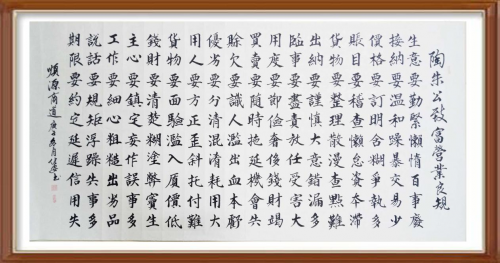 陶朱公致富營業良規
生意要勤緊懶惰百事廢
接納要温和躁暴交易少
價格要訂明含糊爭執多
賬目要稽查懶怠資本滯
貨物要整理散漫查點難
出納要謹慎大意錯漏多
臨事要盡責放任受害大
用度要節儉奢侈錢財竭
買賣要隨時拖延機會失
賒欠要識人濫出血本虧
優劣要分清混淆耗用大
用人要方正歪斜托付難
貨物要面驗濫入價低
錢財要清楚糊塗弊竇生
主心要鎮定妄作誤事多
工作要細心粗糙出劣品
說話要規矩浮躁失事多
期限要約定延遲信用失
順源商道